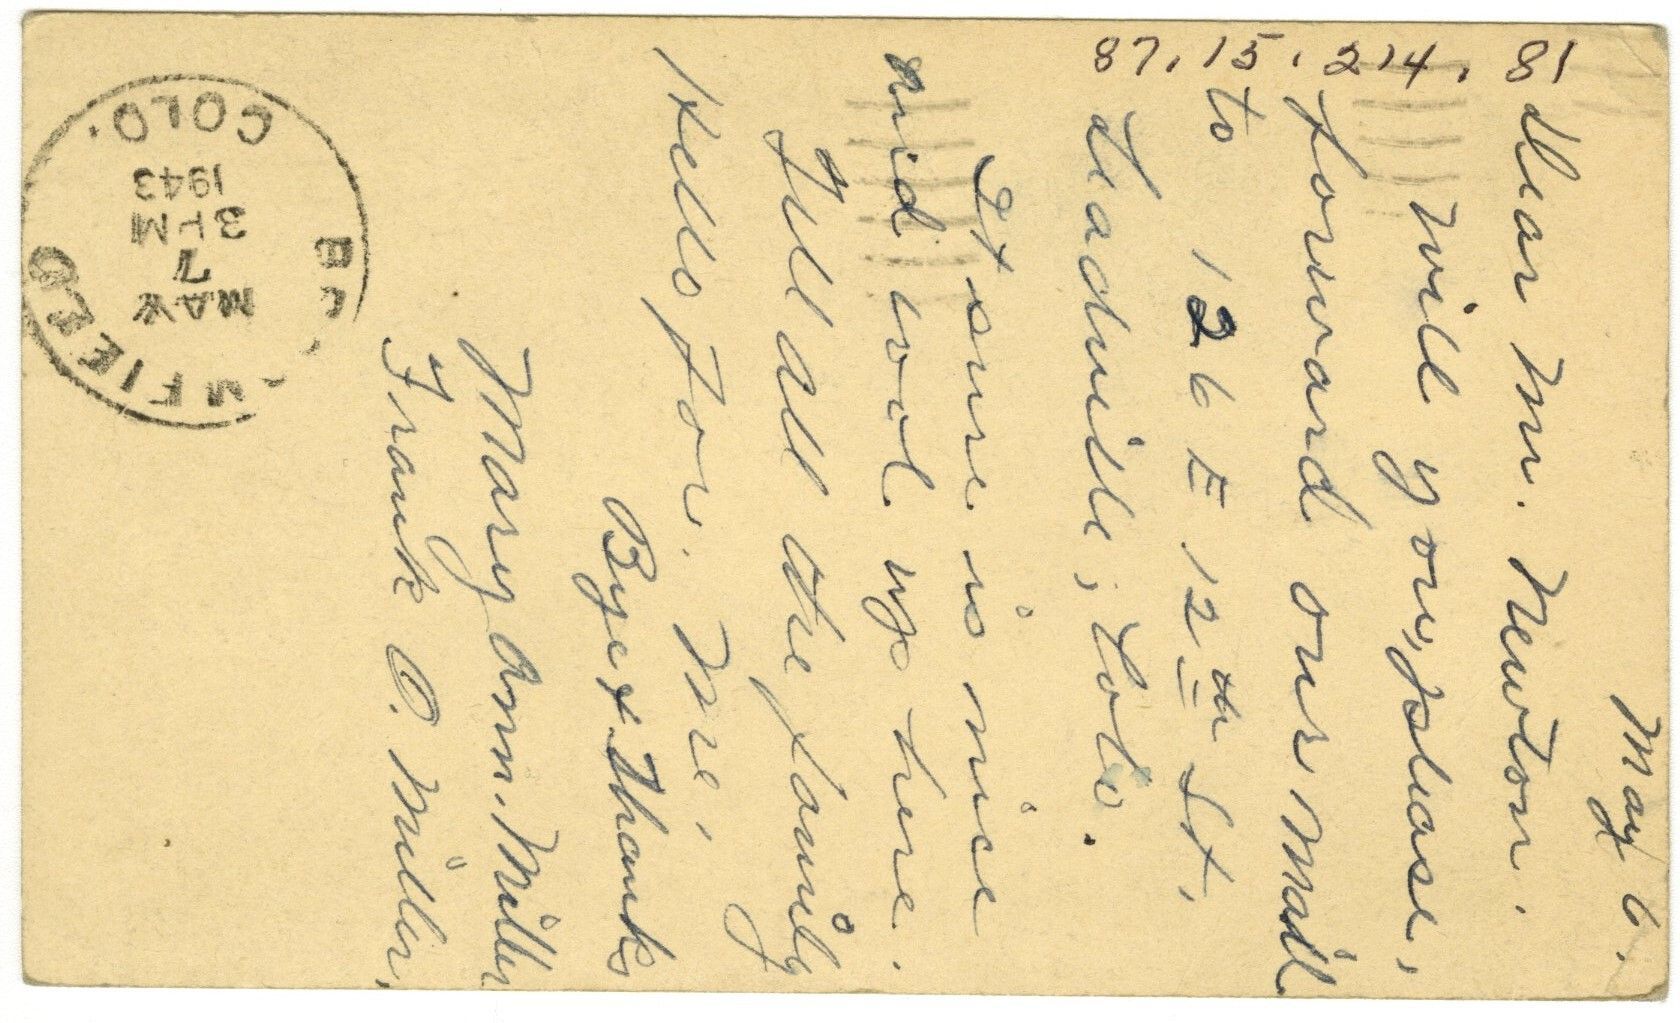 87.15.214.81
May 6.
Dear Mr. Newton:
Will you, please,
forward our mail
to 126 E 12th St.
Leadville, Colo.
It sure is nice
and cool up here.
Tell all the family
Hello for me,
Bye & Thanks
Mary Ann Miller
Frank O. Miller,
COLO.
1943
3 PM
7
MAY